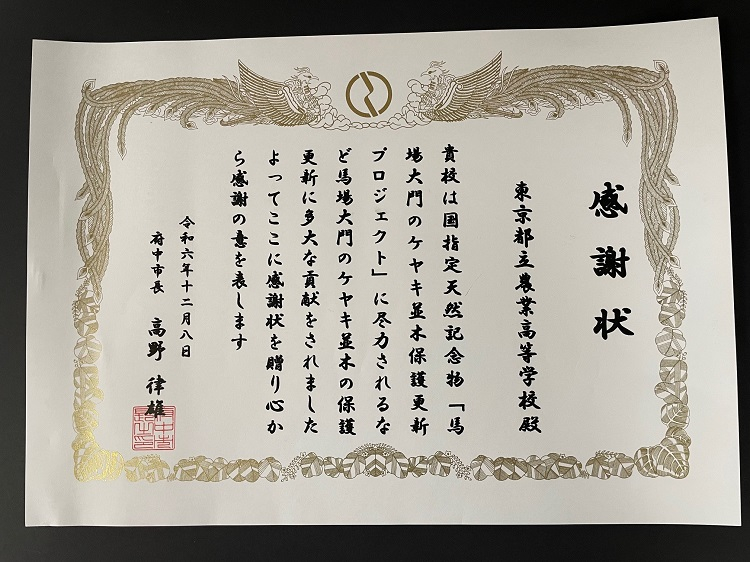 感謝状
東京都立農業高等学校殿
貴校は国指定天然記念物「馬
場大門のケヤキ並木保護更新
プロジェクト」に尽力されるな
ど馬場大門のケヤキ並木の保護
更新に多大な貢献をされました
よってここに感謝状を贈り心か
ら感謝の意を表します
令和六年十二月八日
府中市長 高野 律雄